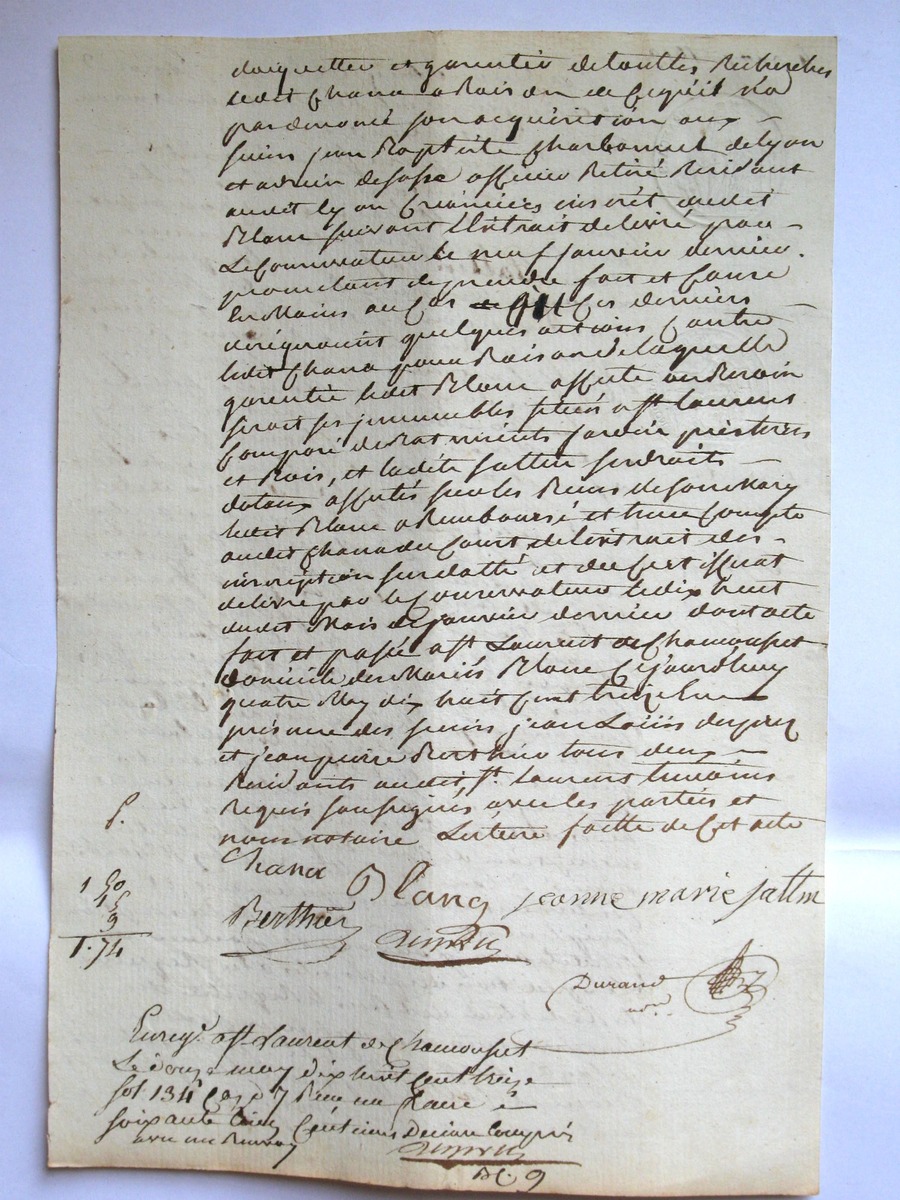 daquetter et garentir de touttes Recherches
ledit Chana a Raison de ce qu'il n'a
pas denoncé son acquisition aux
sieurs jean Baptiste Charbonnet de lyon
et officier Retiré Residant
audit lyon créanciers inscrit dudit
Blanc suivant l'Extrait delivré par
Le Conservateur le neuf janvier dernier.
promettant de prendre fait et Cause
En Mains au Cas ces derniers
dirigeroint quelques actions Contre
ledit Chana pour Raison de laquelle
garentie ledit Blanc affecte au Besoin
ses jmmeubles situés a st Laurent
Composé de Batiments jardin prés terres
et Bois, et ladite jattin ses droits
dotaux affectés sur les Biens de son Mary
ledit Blanc a Remboursé et tenu Compte
audit Chana du Cout de l'extrait des
inscription susdatté et du Certifficat
delivré par le Conservateur le dix huit
dudit Mois de janvier dernier dont acte
fait et passé a st Laurent de Chamousset
domicile des Mariés Blanc Cejourdhuy
quatre May dix huit Cent treize En
présence des sieurs jean Loüis
et jean pierre Berthier tous deux
Residants audit st. Laurent temoins
Requis soussignés avec les parties et
nous notaire Lecture faitte de Cet acte
Chana Blanc jeanne marie jattin
Berthier
Durand
not..
1 50
15
9
1.74
Enreg. a st Laurent de Chamousset
Le douze may dix huit Cent treize
fol 134 Case 7 Reçu un franc
soixante Cinq Centimes Decime Compris
avec un Renvoy